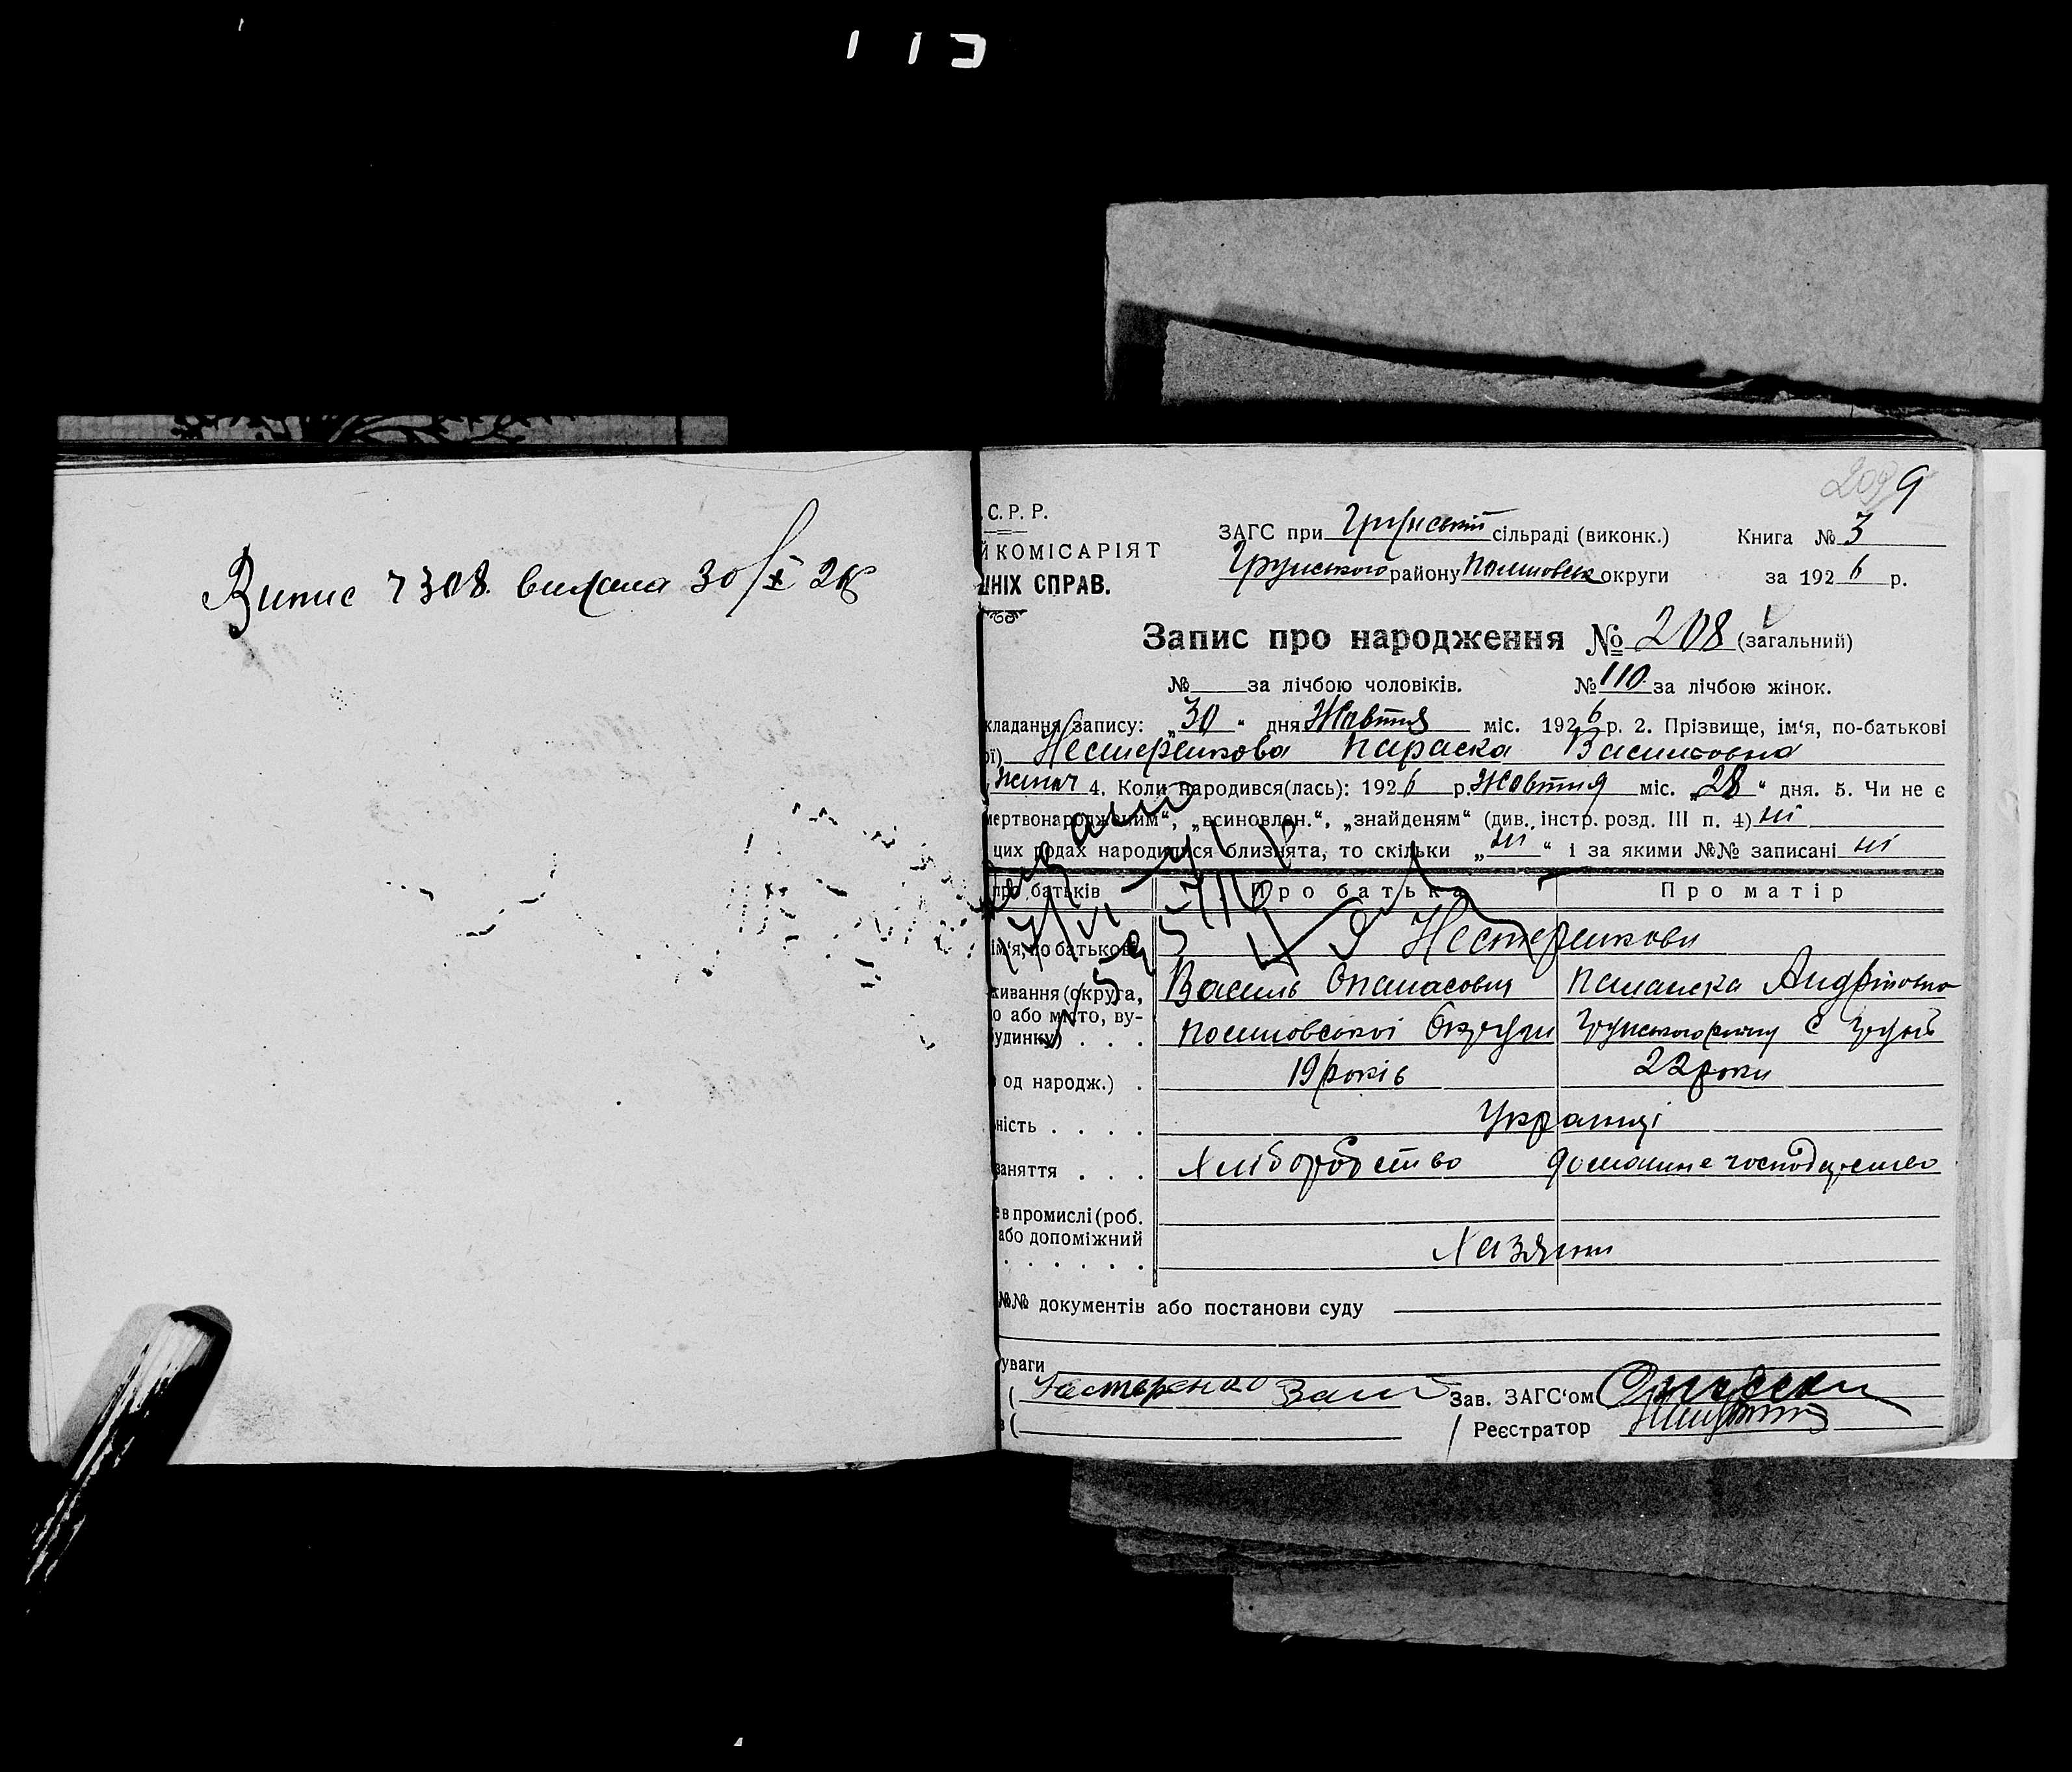 Випис 7308 видана 30/X 26
209 9
С. Р. Р.
Й КОМІСАРІЯТ
ШНІХ СПРАВ.
ЗАГС при Грунській сільраді (виконк.) Книга № 3
Грунського району Полтовськ округи за 1926 р.
Запис про народження № 208 (загальний)
№ за лічбою чоловіків. № 110 за лічбою жінок.
кладання запису: „30“ дня Жовтня міс. 1926 р. 2. Прізвище, ім‘я, по-батькові
ої) Нестеренкова Параска Васильовна
4. Коли народився(лась): 1926 р. Жовтня міс. „28“ дня. 5. Чи не є
мертвонародженим“, „всиновлен.“, „знайденям“ (див. інстр. розд. III п. 4) ні
цих родах народилися близнята, то скільки „ні“ і за якими №№ записані ні
про батьків Про батька Про матір
ім‘я, по батькові Нестеренкови
Василь Опанасович Палажка Андріовна
живання (округа,
о або місто, ву-
удинку) . . . Полтовської Округи Грунського району С Грунь
од народж.) . 19 років 22 роки
ність . . . . Українці
заняття . . . Хліборобство домашнє господарство
е в промислі (роб.
або допоміжний
. . . . . . Хазяини
№№ документів або постанови суду
уваги
( Нестеренко Зав. ЗАГС‘ом
в ( Реєстратор